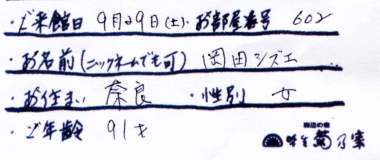 ・ご来館日 9月29日(土)・お部屋番号 602
・お名前(ニックネームでも可) 岡田シズエ
・お住まい 奈良 ・性別 女
・ご年齢 91才
海辺の宿